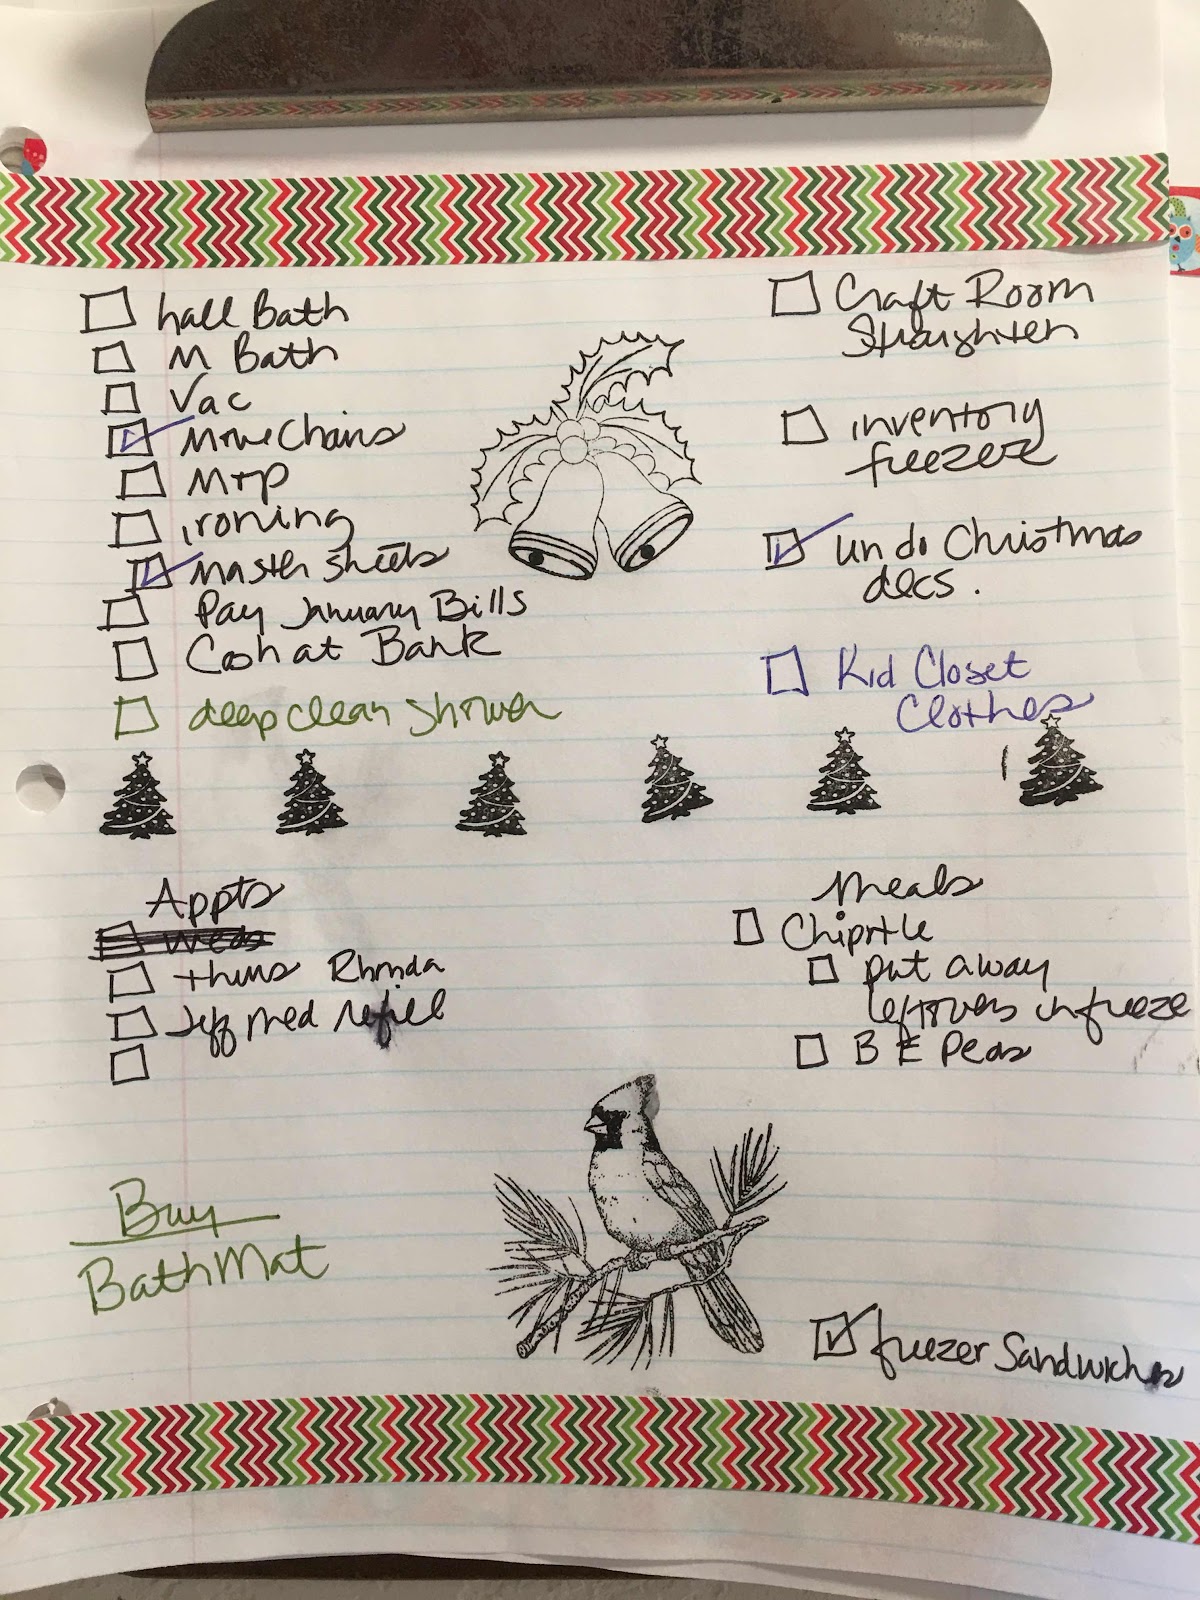 hall Bath
M Bath
Vac
Move Chairs
Mop
ironing
Master Sheets
Pay January Bills
Cash at Bank
deep clean shower
Craft Room
Straighten
inventory
freezer
undo Christmas
decs.
Kid Closet
Clothes
Appts
Weds
thurs Rhonda
Jeff med refill
Meals
Chipotle
put away
leftovers in freeze
B E Peas
Buy
Bath Mat
freezer Sandwiches